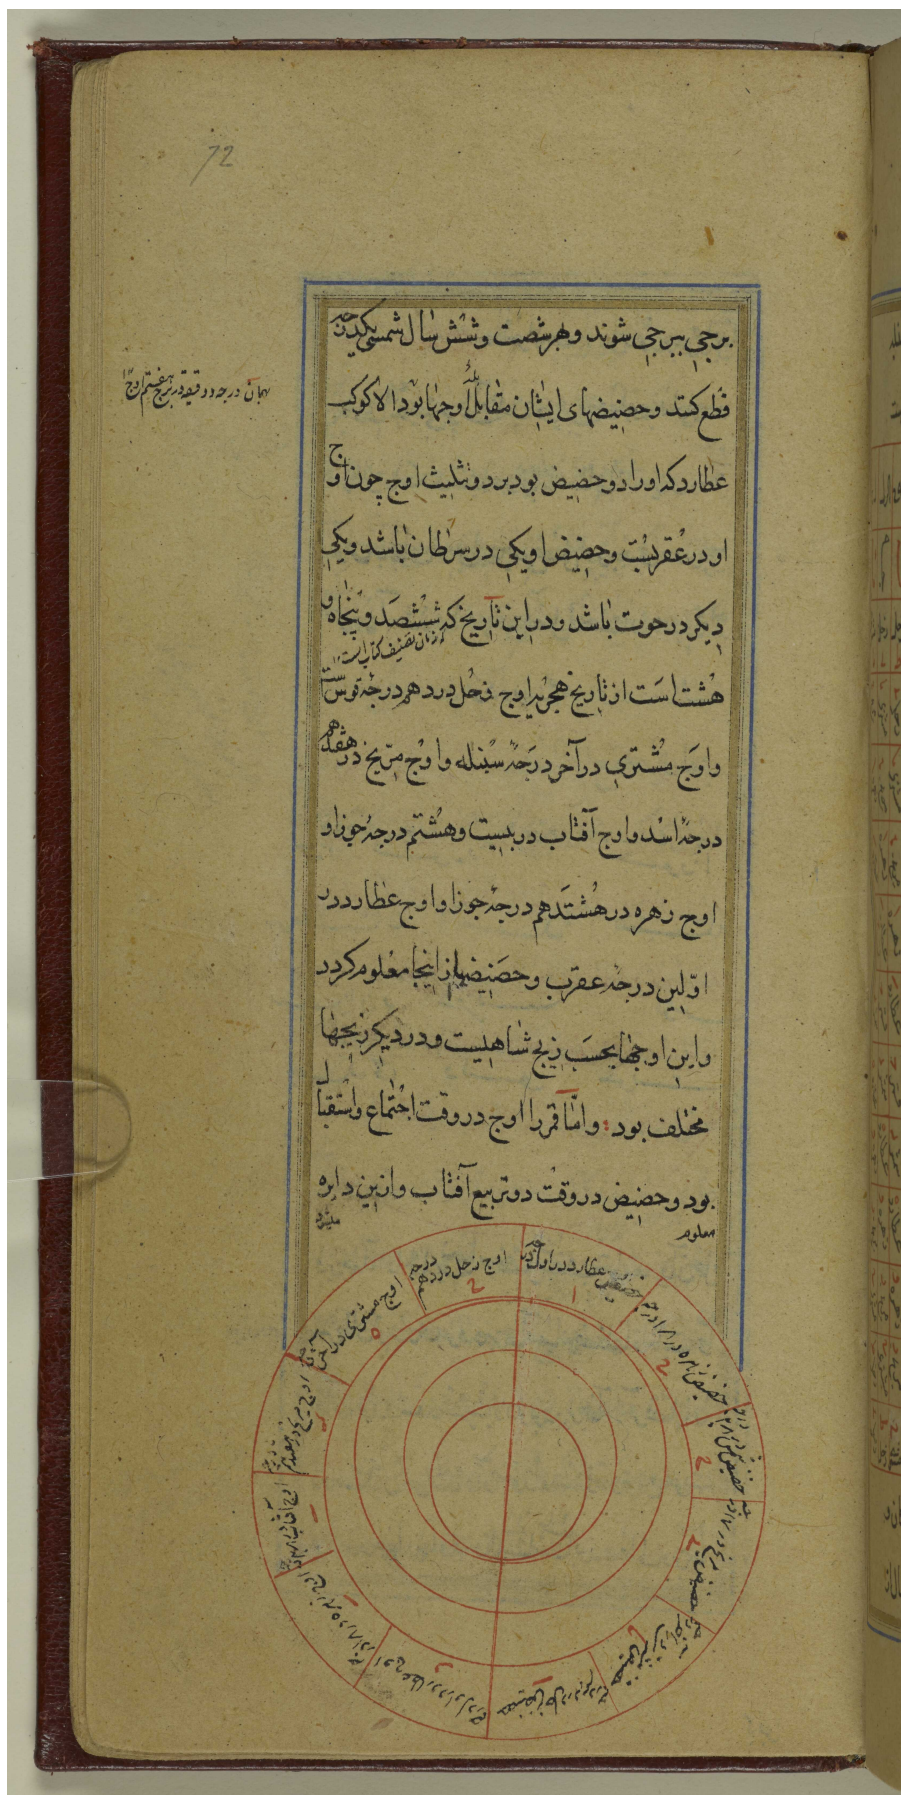 72
برجی ببرجی شوند و هر شصت و شش سال شمسی یکدرجه
قطع کنند و حضیضهای ایشان مقابلهٔ اوجها بود الا کوکب
عطارد که او را دو حضیض بود بر دو تثلیث اوج چون اوج
او در عقربست و حضیض او یکی در سرطان باشد و یکی
دیگر در حوت باشد و در این تاریخ که ششصد و پنجاه و
که زمان تصنیف کتاب است
هشت است از تاریخ هجریه اوج زحل در دهم درجهٔ قوس است
و اوج مشتری در آخر درجهٔ سنبله و اوج مریخ در هفدهم
درجهٔ اسد و اوج آفتاب در بیست و هشتم درجهٔ جوزا و
اوج زهره در هشتدهم درجهٔ جوزا و اوج عطارد در
اولین درجهٔ عقرب و حضیضها از اینجا معلوم کردد
و این اوجها بحسب زیج شاهیست و در دیکر زیجها
مختلف بود و اما قمر را اوج در وقت اجتماع و استقبال
بود و حضیض در وقت دو تربیع آفتاب و ازین دایره
معلوم میشود
حضیض عطارد در اول درجه
اوج زحل در دهم درجه
اوج مشتری در آخر درجه
اوج مریخ در هفدهم درجه
حضیض زهره در ۱۸ درجه
اوج عطارد در اول درجه
حضیض زحل در دهم درجه